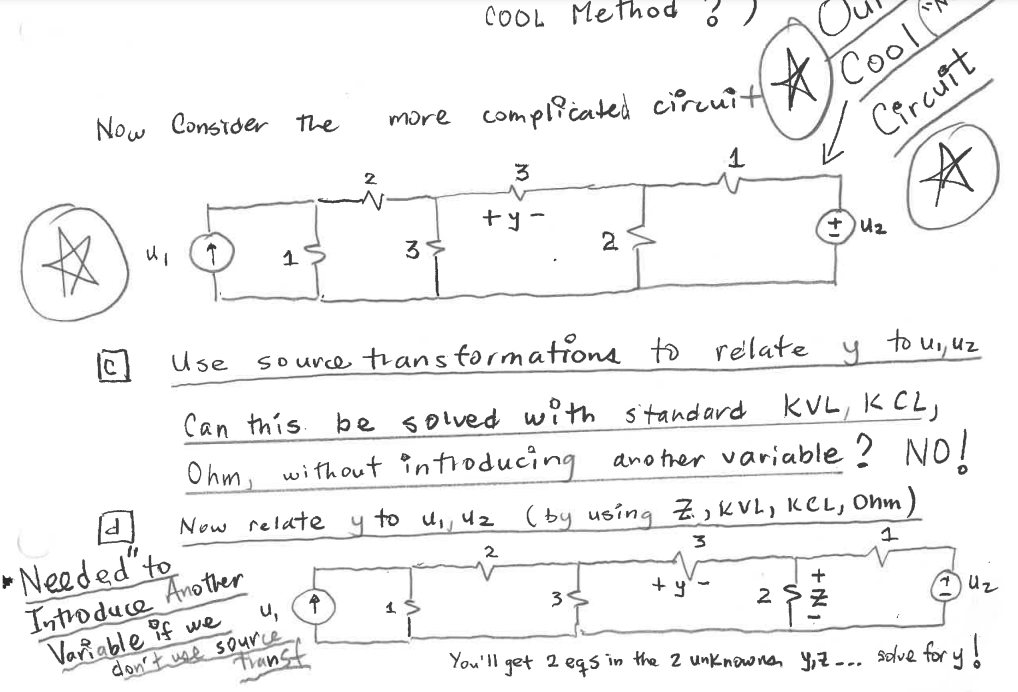 COOL Method ? )
Our
Cool "N
Circuit
Now Consider the more complicated circuit
2
3
1
+ y -
u1
1
3
2
+ -
u2
c Use source transformations to relate y to u1, u2
Can this be solved with standard KVL, KCL,
Ohm, without introducing another variable? NO!
d Now relate y to u1, u2 (by using Z, KVL, KCL, Ohm)
"Needed" to
Introduce Another
Variable if we
don't use source
transf
2
3
1
u1
1
3
+ y -
2
+
Z
-
+ -
u2
You'll get 2 eqs in the 2 unknowns y, z --- solve for y!